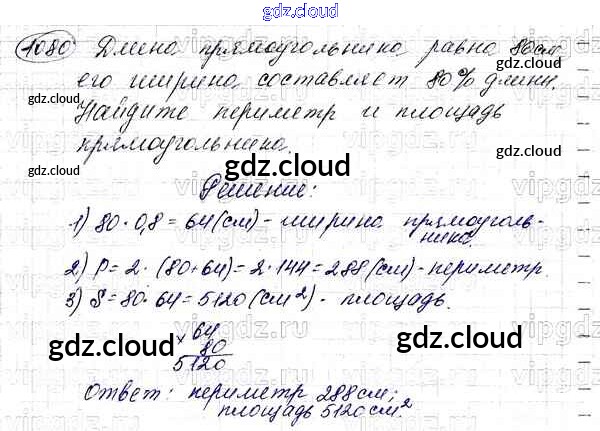 gdz.cloud
1080 Длина прямоугольника равна 80 см
его ширина составляет 80% длины.
gdz.cloud gdz.cloud
Найдите периметр и площадь
прямоугольника.
gdz.cloud gdz.cloud gdz.cloud
Решение:
1) 80 · 0,8 = 64 (см) - ширина прямоуголь-
ника.
gdz.cloud
2) P = 2 · (80+64) = 2 · 144 = 288 (см) - периметр.
3) S = 80 · 64 = 5120 (см²) - площадь.
vipgdz.ru
× 64
80
5120
gdz.cloud gdz.cloud
Ответ: периметр 288 см;
площадь 5120 см²
gdz.cloud